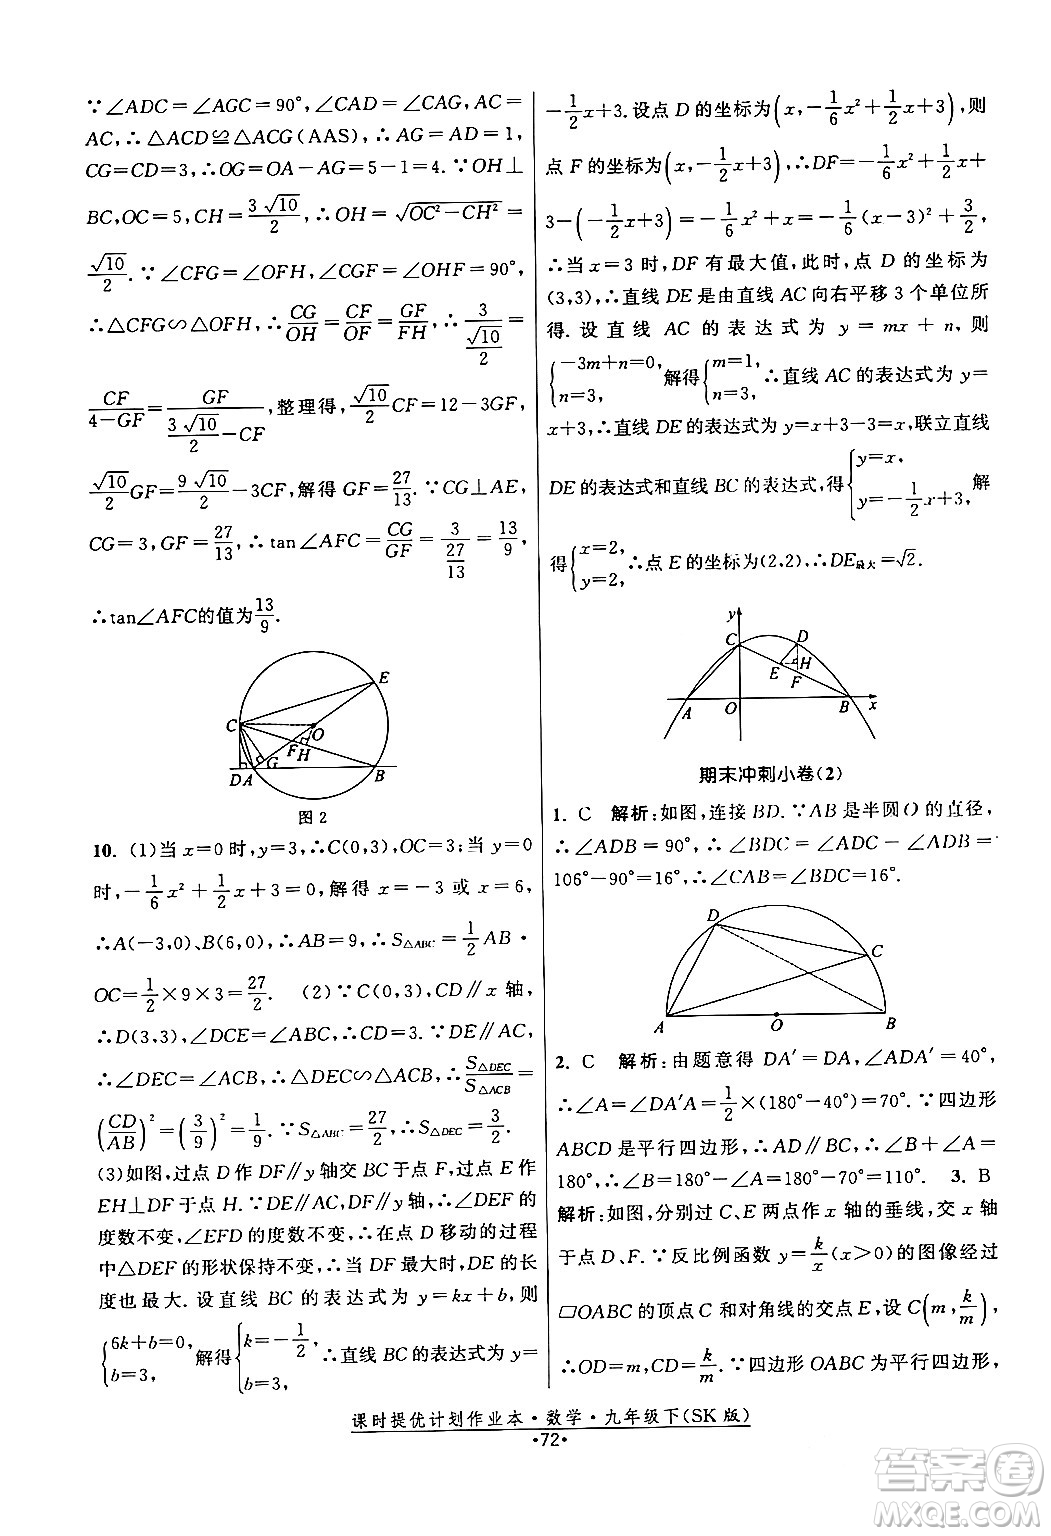 ∵∠ADC=∠AGC=90°,∠CAD=∠CAG,AC=
AC,∴△ACD≌△ACG(AAS).∴AG=AD=1,
CG=CD=3,∴OG=OA-AG=5-1=4.∵OH⊥
BC,OC=5,CH=3√10/2,∴OH=√(OC²-CH²)=
√10/2.∵∠CFG=∠OFH,∠CGF=∠OHF=90°,
∴△CFG∽△OFH,∴CG/OH=CF/OF=GF/FH,∴3/(√10/2)=
CF/(4-GF)=GF/(3√10/2-CF),整理得,√10/2CF=12-3GF,
√10/2GF=9√10/2-3CF,解得GF=27/13.∵CG⊥AE,
CG=3,GF=27/13,∴tan∠AFC=CG/GF=3/(27/13)=13/9,
∴tan∠AFC的值为13/9.
C E F H O G D A B
图2
10. (1)当x=0时,y=3,∴C(0,3),OC=3;当y=0
时,-1/6x²+1/2x+3=0,解得x=-3或x=6,
∴A(-3,0)、B(6,0),∴AB=9,∴S△ABC=1/2AB·
OC=1/2×9×3=27/2. (2)∵C(0,3),CD∥x轴,
∴D(3,3),∠DCE=∠ABC,∴CD=3.∵DE∥AC,
∴∠DEC=∠ACB,∴△DEC∽△ACB,∴S△DEC/S△ACB=
(CD/AB)²=(3/9)²=1/9.∵S△ABC=27/2,∴S△DEC=3/2.
(3)如图,过点D作DF∥y轴交BC于点F,过点E作
EH⊥DF于点H.∵DE∥AC,DF∥y轴,∴∠DEF的
度数不变,∠EFD的度数不变,∴在点D移动的过程
中△DEF的形状保持不变,∴当DF最大时,DE的长
度也最大.设直线BC的表达式为y=kx+b,则
{6k+b=0, b=3, 解得{k=-1/2, b=3, ∴直线BC的表达式为y=
-1/2x+3.设点D的坐标为(x,-1/6x²+1/2x+3),则
点F的坐标为(x,-1/2x+3),∴DF=-1/6x²+1/2x+
3-(-1/2x+3)=-1/6x²+x=-1/6(x-3)²+3/2,
∴当x=3时,DF有最大值,此时,点D的坐标为
(3,3),∴直线DE是由直线AC向右平移3个单位所
得.设直线AC的表达式为y=mx+n,则
{-3m+n=0, n=3, 解得{m=1, n=3, ∴直线AC的表达式为y=
x+3,∴直线DE的表达式为y=x+3-3=x,联立直线
DE的表达式和直线BC的表达式,得{y=x, y=-1/2x+3, 解
得{x=2, y=2, ∴点E的坐标为(2,2),∴DE最大=√2.
y C D E H F A O B x
期末冲刺小卷(2)
1. C 解析:如图,连接BD.∵AB是半圆O的直径,
∴∠ADB=90°,∴∠BDC=∠ADC-∠ADB=
106°-90°=16°,∴∠CAB=∠BDC=16°.
D C A O B
2. C 解析:由题意得DA′=DA,∠ADA′=40°,
∴∠A=∠DA′A=1/2×(180°-40°)=70°.∵四边形
ABCD是平行四边形,∴AD∥BC,∴∠B+∠A=
180°,∴∠B=180°-∠A=180°-70°=110°. 3. B
解析:如图,分别过C、E两点作x轴的垂线,交x轴
于点D、F.∵反比例函数y=k/x(x>0)的图像经过
▱OABC的顶点C和对角线的交点E,设C(m,k/m),
∴OD=m,CD=k/m.∵四边形OABC为平行四边形,
课时提优计划作业本·数学·九年级下(SK版)
·72·
答案圈
MXQE.COM